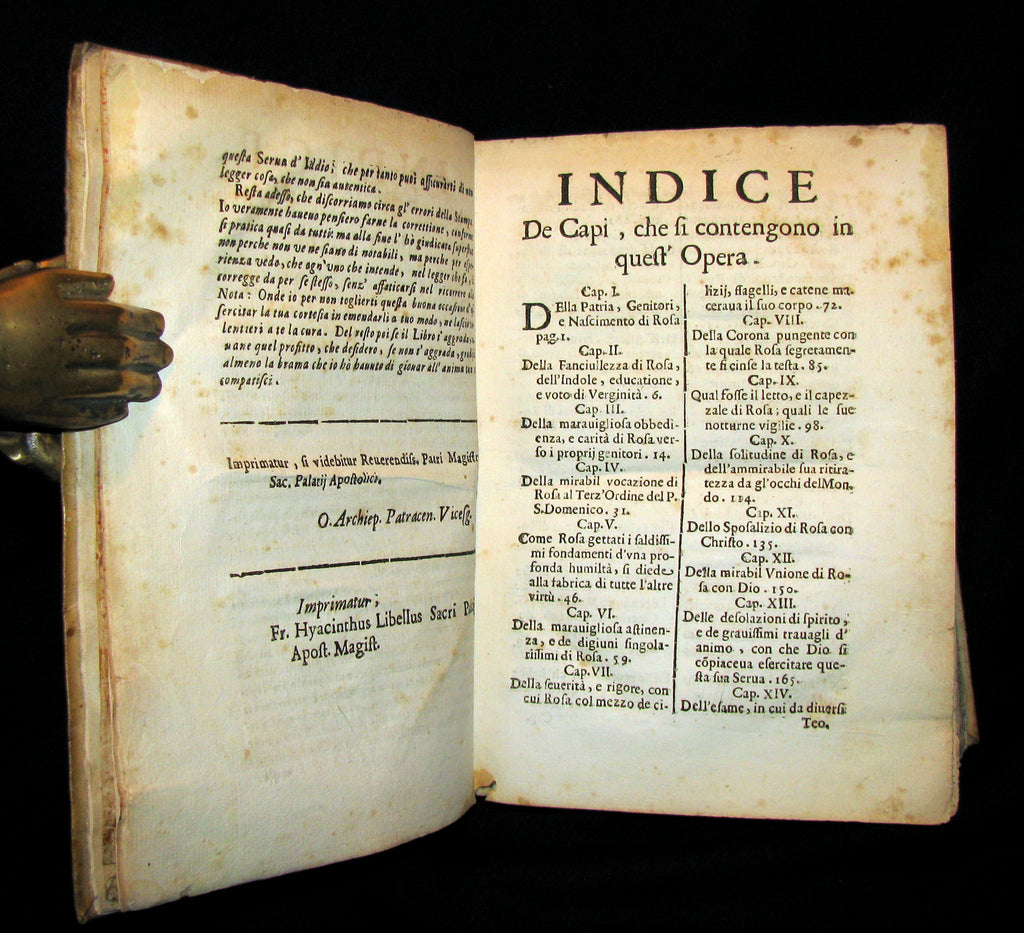 questa Serua d' Iddio; che per tanto puoi assicurarti di non
legger cosa, che non sia autentica.
Resta adesso, che discorriamo circa gl' errori della Stampa.
Io veramente haueuo pensiero farne la correttione, conforme
si pratica quasi da tutti: ma alla fine l' hò giudicata
non perche non ve ne siano di notabili, ma perche per
rienza vedo, che ogn' vno che intende, nel legger che fa,
corregge da per se stesso, senz' affaticarsi nel ricorrere
Nota: Onde io per non toglierti questa buona occasione
sercitar la tua cortesia in emendarli a tuo modo, ne lascio
lentieri a te la cura. Del resto poi se il Libro t' aggrada,
uane quel profitto, che desidero, se non t' aggrada,
almeno la brama che io hò hauuto di giouar all' anima tua
compatisci.
Imprimatur, si videbitur Reuerendiss. Patri Magistr
Sac. Palatij Apostolici.
O. Archiep. Patracen. Vicesg.
Imprimatur;
Fr. Hyacinthus Libellus Sacri
Apost. Magist.
INDICE
De Capi, che si contengono in
quest' Opera.
Cap. I.
DElla Patria, Genitori,
e Nascimento di Rosa
pag. 1.
Cap. II.
Della Fanciullezza di Rosa,
dell'Indole, educatione,
e voto di Verginità. 6.
Cap. III.
Della marauigliosa obbedi-
enza, e carità di Rosa ver-
so i proprij genitori. 14.
Cap. IV.
Della mirabil vocazione di
Rosa al Terz'Ordine del P.
S. Domenico. 31.
Cap. V.
Come Rosa gettati i saldissi-
mi fondamenti d'vna pro-
fonda humiltà, si diede
alla fabrica di tutte l'altre
virtù. 46.
Cap. VI.
Della marauigliosa astinen-
za, e de digiuni singola-
rissimi di Rosa. 59.
Cap. VII.
Della seuerità, e rigore, con
cui Rosa col mezzo de ci-
lizij, flagelli, e catene ma-
ceraua il suo corpo. 72.
Cap. VIII.
Della Corona pungente con
la quale Rosa segretamen-
te si cinse la testa. 85.
Cap. IX.
Qual fosse il letto, e il capez-
zale di Rosa; quali le sue
notturne vigilie. 98.
Cap. X.
Della solitudine di Rosa, e
dell'ammirabile sua ritira-
tezza da gl'occhi del Mon-
do. 114.
Cap. XI.
Dello Sposalizio di Rosa con
Christo. 135.
Cap. XII.
Della mirabil Vnione di Ro-
sa con Dio. 150.
Cap. XIII.
Delle desolazioni di spirito,
e de grauissimi trauagli d'
animo, con che Dio si
cõpiaceua esercitare que-
sta sua Serua. 165.
Cap. XIV.
Dell'esame, in cui da diuersi
Teo.